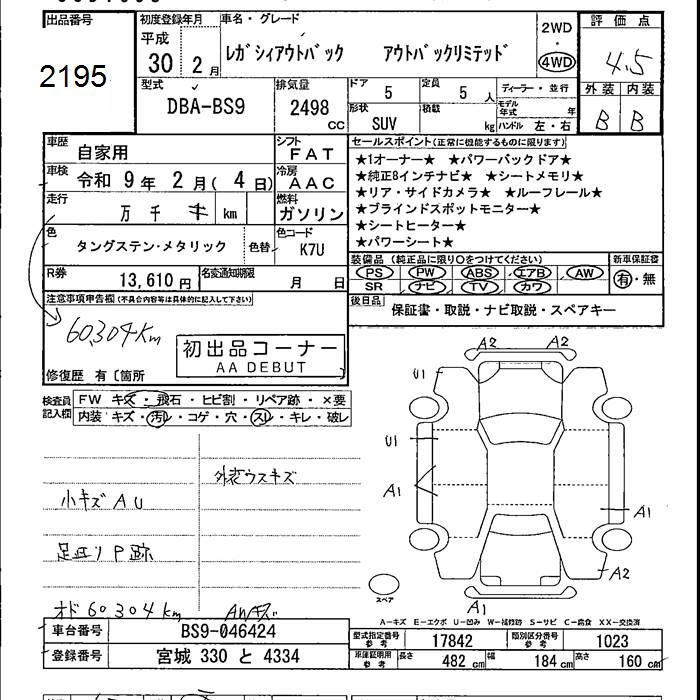 出品番号
2195
初度登録年月
平成
30 2月
車名・グレード
レガシィアウトバック アウトバックリミテッド
2WD
・
4WD
評価点
4.5
外装 内装
B B
型式
DBA-BS9
排気量
2498
CC
ドア
5
定員
5 人
形状
SUV
積載
kg
ディーラー・並行
モデル年式 年
ハンドル 左・右
車歴
自家用
シフト
FAT
車検
令和 9年 2月(4日)
冷房
AAC
走行
万 千 km
燃料
ガソリン
色
タングステン・メタリック
色替
色コード
K7U
R券
13,610円
名変通知期限
月 日
セールスポイント(正常に機能するものに限ります)
★1オーナー★ ★パワーバックドア★
★純正8インチナビ★ ★シートメモリ★
★リア・サイドカメラ★ ★ルーフレール★
★ブラインドスポットモニター★
★シートヒーター★
★パワーシート★
装備品(純正品に限り○をつけてください)
新車保証書
PS PW ABS エアB AW
SR ナビ TV カワ
有・無
後日品
保証書・取説・ナビ取説・スペアキー
注意事項申告欄(不具合内容等は具体的に記入して下さい)
60,304Km
初出品コーナー
AA DEBUT
修復歴 有〔箇所
検査員記入欄
FW キズ・飛石・ヒビ割・リペア跡・×要
内装 キズ・汚レ・コゲ・穴・スレ・キレ・破レ
外装ウスキズ
小キズAU
足廻りP跡
オド60304km
AWキズ
A2 A2
U1
U1
A1
A1
A2
A1
スペア
A-キズ E-エクボ U-凹み W-補修跡 S-サビ C-腐食 XX-交換済
車台番号
BS9-046424
登録番号
宮城 330 と 4334
型式指定番号
参考
17842
類別区分番号
参考
1023
車庫証明用
参考
長さ
482 cm
幅
184 cm
高さ
160 cm